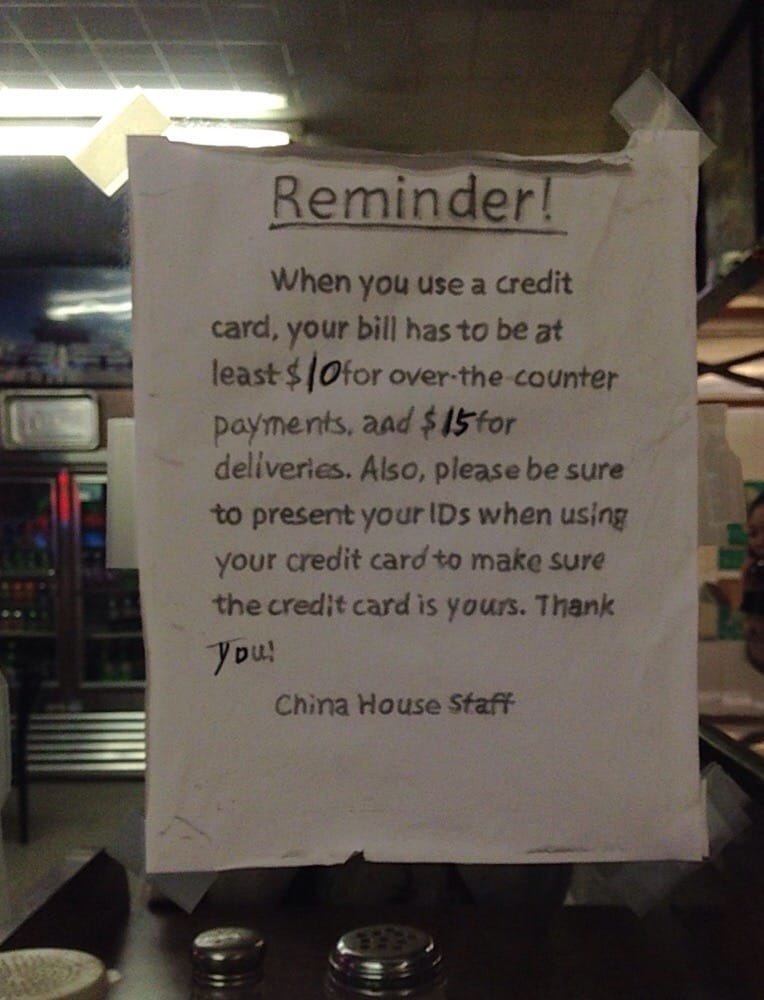 Reminder!
When you use a credit
card, your bill has to be at
least $10 for over-the counter
payments, and $15 for
deliveries. Also, please be sure
to present your IDs when using
your credit card to make sure
the credit card is yours. Thank
you!
China House Staff